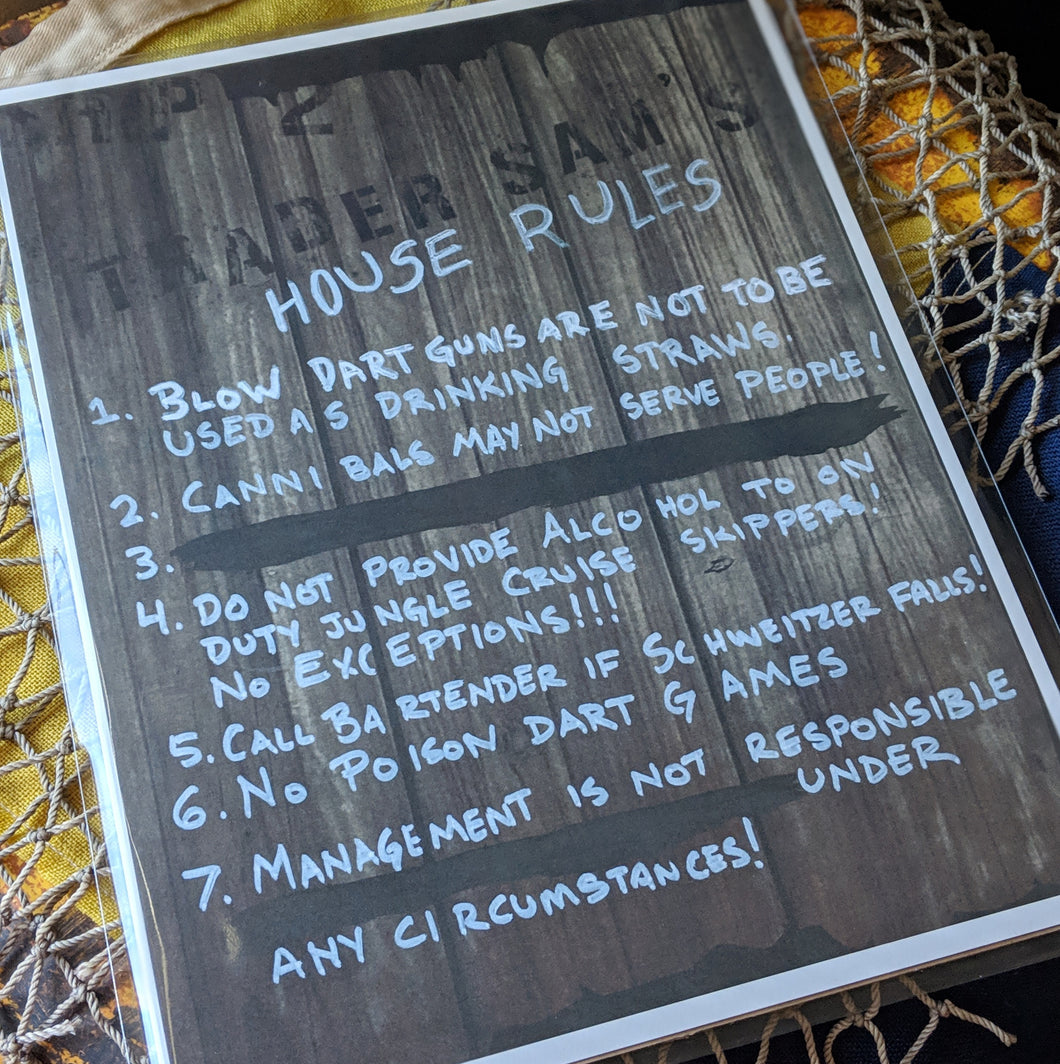 2
TRADER SAM'S
HOUSE RULES
1. BLOW DART GUNS ARE NOT TO BE
USED AS DRINKING STRAWS.
2. CANNIBALS MAY NOT SERVE PEOPLE!
3.
4. DO NOT PROVIDE ALCOHOL TO ON
DUTY JUNGLE CRUISE SKIPPERS!
NO EXCEPTIONS!!!
5. CALL BARTENDER IF SCHWEITZER FALLS!
6. NO POISON DART GAMES
7. MANAGEMENT IS NOT RESPONSIBLE
UNDER
ANY CIRCUMSTANCES!